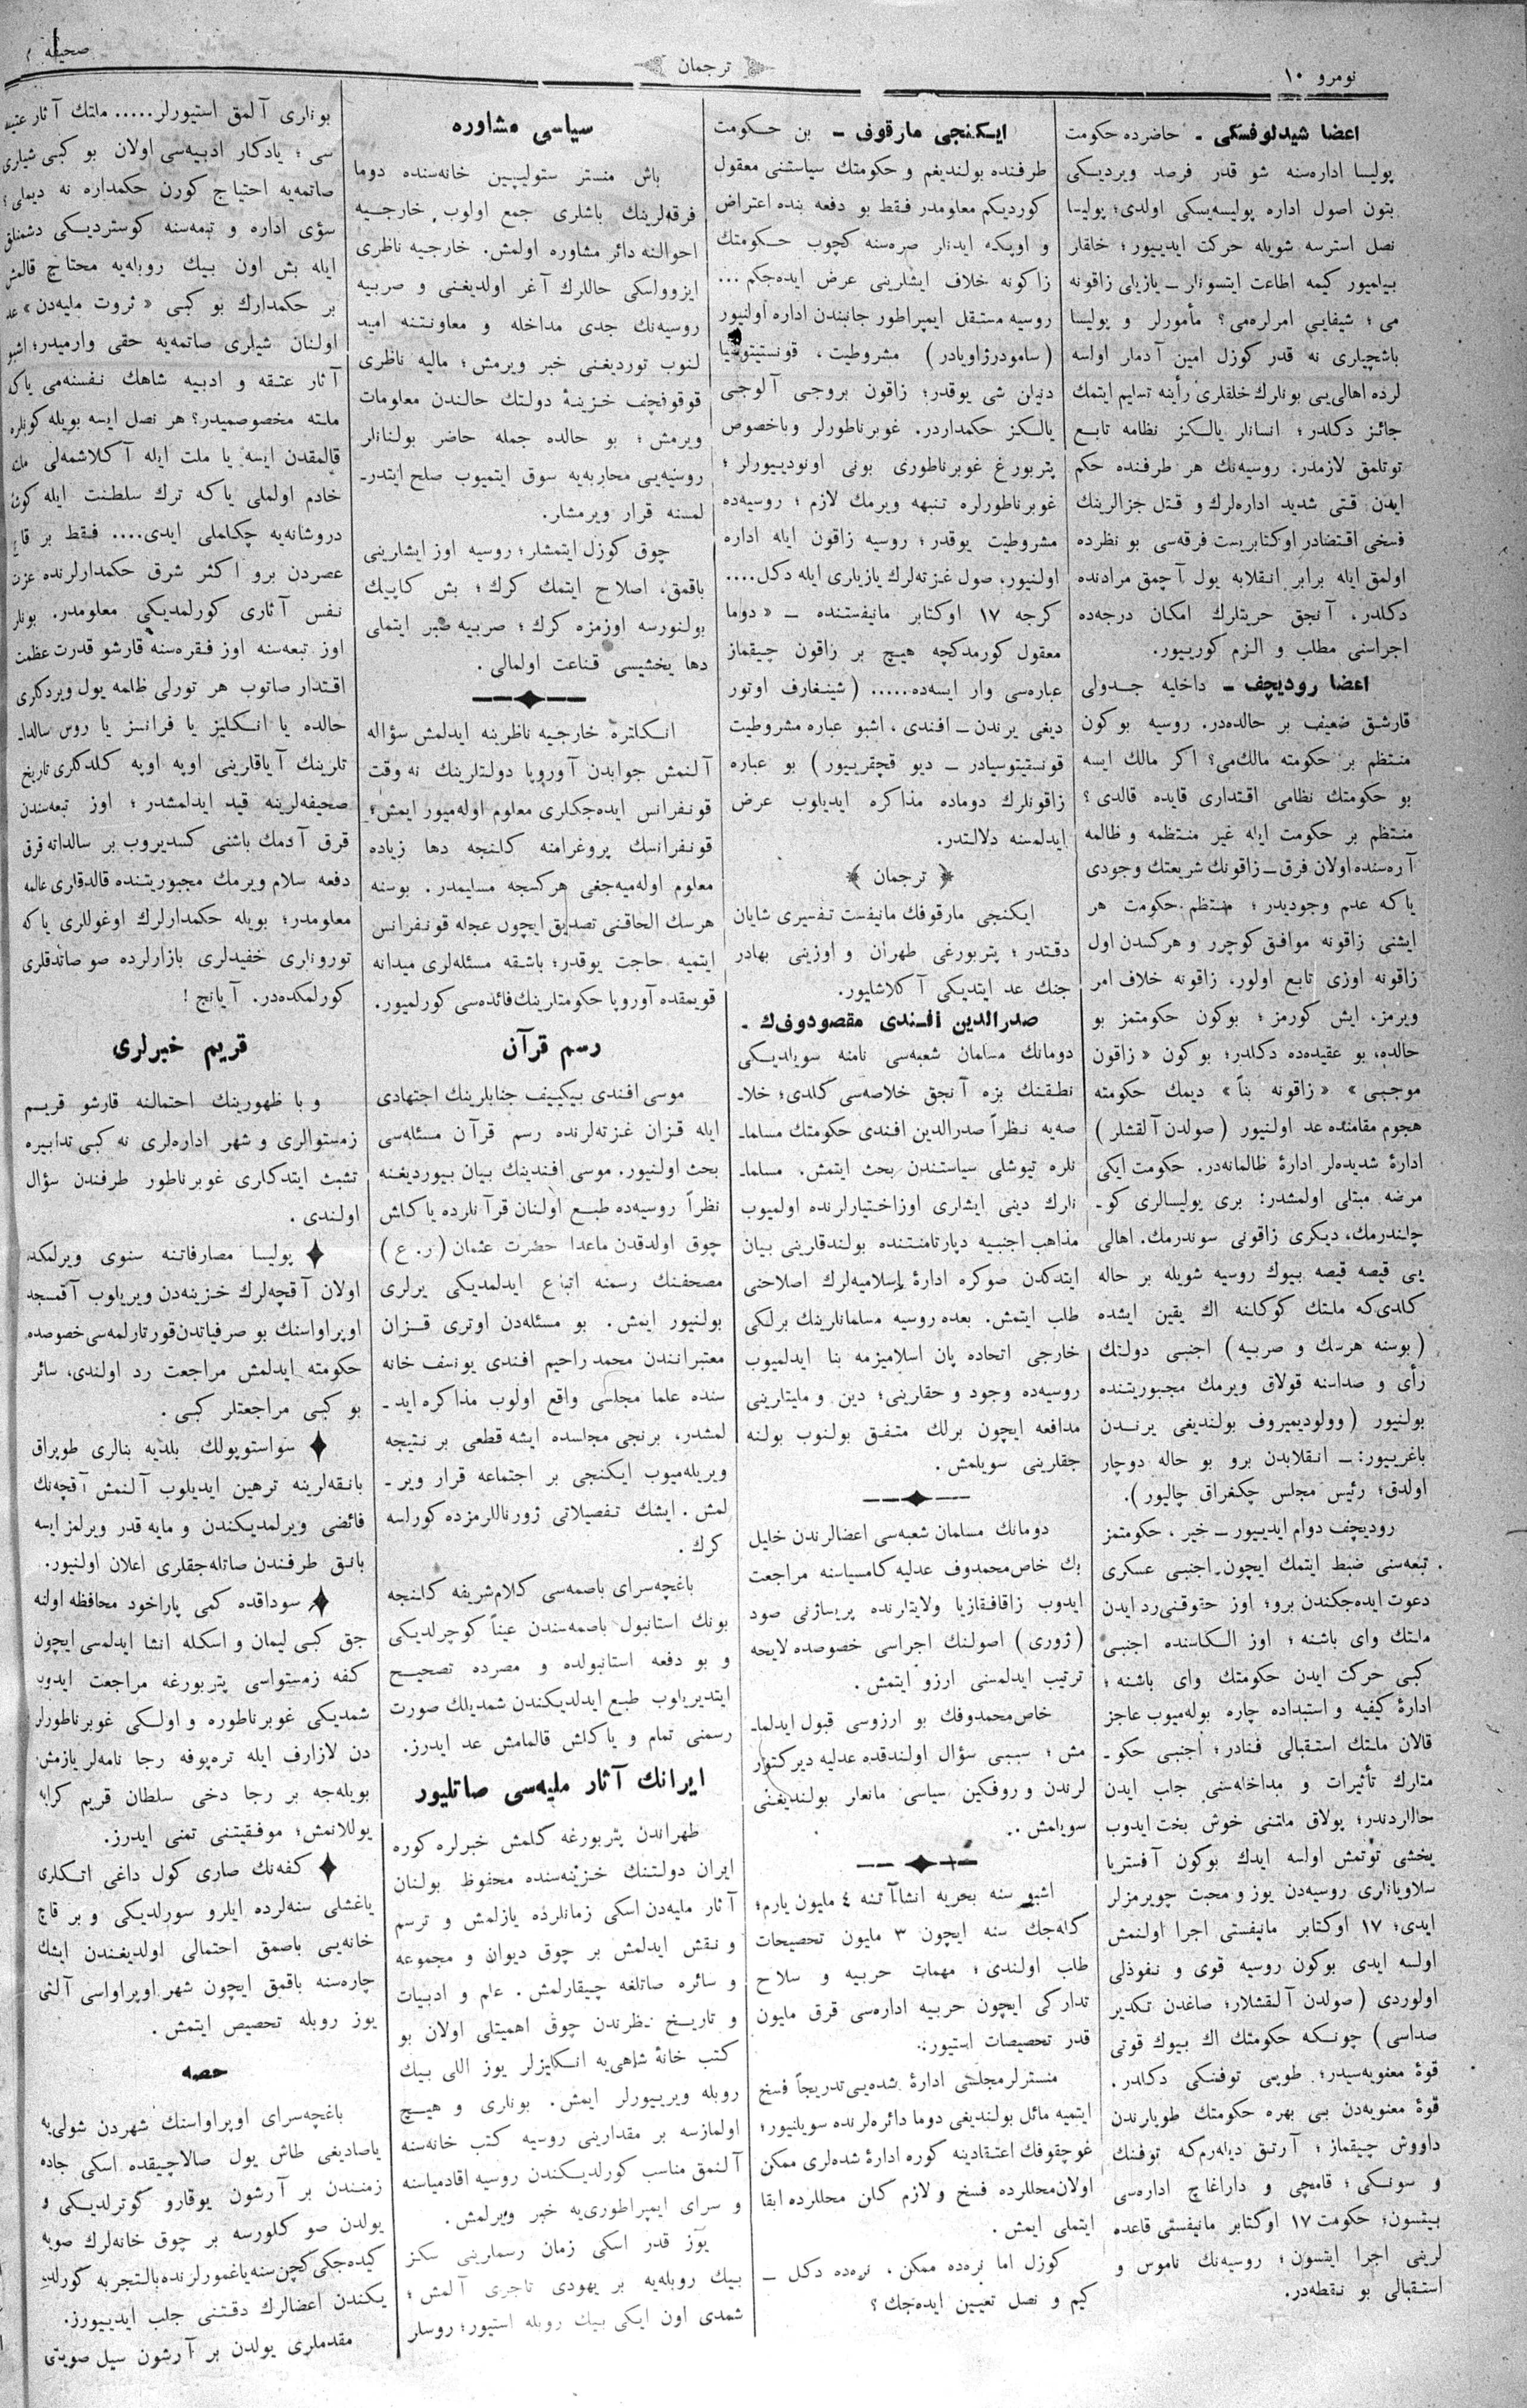 نومرو ١٠
ترجمان
صحيفه
اعضا شيدلوفسكی ـ حاضرده حكومت
پوليسا اداره‌سنه شو قدر فرصد ويرديكی
بتون اصول اداره پوليسه‌يسكی اولدی؛ پوليسا
نصل استرسه شويله حركت ايدييور؛ خلقلر
بيلميور كيمه اطاعت ايتسونلر ـ يازيلی زاقونه
می؛ شيفايی امرلره‌می؟ مأمورلر و پوليسا
باشچيلری نه قدر كوزل امين آدملر اولسه
لرده اهالی‌يی بونلرك خلقلری رأينه تسليم ايتمك
جائز دكلدر؛ انسانلر يالكز نظامه تابع
توتلمق لازمدر: روسيه‌نك هر طرفنده حكم
ايدن قتی شديد اداره‌لرك و قتل جزالرينك
فسخی اقتضادر اوكتابريست فرقه‌سی بو نظرده
اولمق ايله برابر انقلابه يول آچمق مرادنده
دكلدر، آنجق حريتلرك امكان درجه‌ده
اجراسنی مطلب و الزم كورييور.
اعضا روديچف ـ داخليه جدولی
قارشق ضعيف بر حالده‌در. روسيه بوكون
منتظم بر حكومته مالك‌می؟ اكر مالك ايسه
بو حكومتك نظامی اقتداری قايده قالدی؟
منتظم بر حكومت ايله غير منتظمه و ظالمه
آره‌سنده اولان فرق ـ زاقونك شريعتك وجودی
ياكه عدم وجوديدر؛ منتظم حكومت هر
ايشنی زاقونه موافق كوچرر و هركسدن اول
زاقونه اوزی تابع اولور، زاقونه خلاف امر
ويرمز، ايش كورمز؛ بوكون حكومتمز بو
حالده، بو عقيده‌ده دكلدر؛ بوكون « زاقون
موجبی » « زاقونه بناً » ديمك حكومته
هجوم مقامنده عد اولنيور ( صولدن آلقشلر )
ادارهٔ شديده‌لر ادارهٔ ظالمانه‌در. حكومت ايكی
مرضه مبتلی اولمشدر: بری پوليسالری كوـ
چلندرمك، ديكری زاقونی سوندرمك. اهالی
يی قيصه قيصه بيوك روسيه شويله بر حاله
كلدی‌كه ملتك كوكلنه اك يقين ايشده
( بوسنه هرسك و صربيه ) اجنبی دولتك
رأی و صداسنه قولاق ويرمك مجبوريتنده
بولنيور ( وولوديميروف بولنديغی يرندن
باغرييور: ـ انقلابدن برو بو حاله دوچار
اولدق؛ رئيس مجلس چكغراق چاليور ).
روديچف دوام ايدييور ـ خير، حكومتمز
تبعه‌سنی ضبط ايتمك ايچون اجنبی عسكری
دعوت ايده‌جكندن برو؛ اوز حقوقنی رد ايدن
ملتك وای باشنه؛ اوز الكاسنده اجنبی
كبی حركت ايدن حكومتك وای باشنه؛
ادارهٔ كيفيه و استبداده چاره بوله‌ميوب عاجز
قالان ملتك استقبالی فنادر؛ اجنبی حكوـ
متلرك تأثيرات و مداخله‌سنی جلب ايدن
حاللردندر؛ پولاق ملتنی خوش بخت ايدوب
يخشی توتمش اولسه ايدك بوكون آفستريا
سلاويانلری روسيه‌دن يوز و محبت چويرمزلر
ايدی؛ ١٧ اوكتابر مانيفستی اجرا اولنمش
اولسه ايدی بوكون روسيه قوی و نفوذلی
اولوردی ( صولدن آلقشلار؛ صاغدن تكدير
صداسی ) چونكه حكومتك اك بيوك قوتی
قوهٔ معنويه‌سيدر؛ طوپی توفنكی دكلدر.
قوهٔ معنويه‌دن بی بهره حكومتك طوپلرندن
داووش چيقماز؛ آرتق ديله‌رم‌كه توفنك
و سونكی؛ قامچی و داراغاچ اداره‌سی
بيتسون؛ حكومت ١٧ اوكتابر مانيفستی قاعده
لرينی اجرا ايتسون؛ روسيه‌نك ناموس و
استقبالی بو نقطه‌در.
ايكنجی مارقوف ـ بن حكومت
طرفنده بولنديغم و حكومتك سياستنی معقول
كورديكم معلومدر فقط بو دفعه بنده اعتراض
و اوپكه ايدنلر صره‌سنه كچوب حكومتك
زاكونه خلاف ايشلرينی عرض ايده‌جكم ...
روسيه مستقل ايمپراطور جانبندن اداره اولنيور
( سامودرژاويادر ) مشروطيت، قونستيتوسيا
دنيلن شی يوقدر؛ زاقون بروجی آلوجی
يالكز حكمداردر. غوبرناطورلر وباخصوص
پتربورغ غوبرناطوری بونی اونودييورلر؛
غوبرناطورلره تنبهه ويرمك لازم؛ روسيه‌ده
مشروطيت يوقدر؛ روسيه زاقون ايله اداره
اولنيور، صول غزته‌لرك يازيلری ايله دكل....
كرجه ١٧ اوكتابر مانيفستنده ـ « دوما
معقول كورمدكچه هيچ بر زاقون چيقماز
عباره‌سی وار ايسه‌ده..... ( شينغارف اوتور
ديغی يرندن ـ افندی، اشبو عباره مشروطيت
قونستيتوسيادر ـ ديو قچقرييور ) بو عباره
زاقونلرك دوماده مذاكره ايديلوب عرض
ايدلمسنه دلالتدر.
﴿ ترجمان ﴾
ايكنجی مارقوفك مانيفست تفسيری شايان
دقتدر؛ پتربورغی طهران و اوزينی بهادر
جنك عد ايتديكی آكلاشليور.
صدرالدين افندی مقصودوفك ـ
دومانك مسلمان شعبه‌سی نامنه سويلديكی
نطقنك بزه آنجق خلاصه‌سی كلدی؛ خلاـ
صه‌يه نظراً صدرالدين افندی حكومتك مسلماـ
نلره تيوشلی سياستندن بحث ايتمش. مسلماـ
نلرك دينی ايشلری اوزاختيارلرنده اولميوب
مذاهب اجنبيه دپارتامنتنده بولندقلرينی بيان
ايتدكدن صوكره ادارهٔ اسلاميه‌لرك اصلاحنی
طلب ايتمش. بعده روسيه مسلمانلرينك برلكی
خارجی اتحاده پان اسلاميزمه بنا ايدلميوب
روسيه‌ده وجود و حقلرينی؛ دين و مليتلرينی
مدافعه ايچون برلك متفق بولنوب بولنه
جقلرينی سويلمش.
دومانك مسلمان شعبه‌سی اعضالرندن خليل
بك خاص‌محمدوف عدليه كامسياسنه مراجعت
ايدوب زاقافقازيا ولايتلرنده پريساژنی صود
( ژوری ) اصولنك اجراسی خصوصده لايحه
ترتيب ايدلمسنی ارزو ايتمش.
خاص‌محمدوفك بو ارزوسی قبول ايدلماـ
مش؛ سببی سؤال اولندقده عدليه ديركتور
لرندن وروفكين سياسی مانعلر بولنديغنی
سويلمش.
اشبو سنه بحريه انشاآتنه ٤ مليون يارم؛
كله‌جك سنه ايچون ٣ مليون تخصيصات
طلب اولندی؛ مهمات حربيه و سلاح
تداركی ايچون حربيه اداره‌سی قرق مليون
قدر تخصيصات استيور.
منسترلر مجلسی ادارهٔ شده‌يی تدريجاً فسخ
ايتميه مائل بولنديغی دوما دائره‌لرنده سويلنيور؛
غوچقوفك اعتقادينه كوره ادارهٔ شده‌لری ممكن
اولان محللرده فسخ و لازم كلن محللرده ابقا
ايتملی ايمش.
كوزل اما نره‌ده ممكن، نره‌ده دكل ـ
كيم و نصل تعيين ايده‌جك؟
سياسی مشاوره
باش منستر ستوليپين خانه‌سنده دوما
فرقه‌لرينك باشلری جمع اولوب خارجيه
احوالنه دائر مشاوره اولمش. خارجيه ناظری
ايزوولسكی حاللرك آغر اولديغنی و صربيه
روسيه‌نك جدی مداخله و معاونتنه اميد
لنوب تورديغنی خبر ويرمش؛ ماليه ناظری
قوقوفچف خزينهٔ دولتك حالندن معلومات
ويرمش؛ بو حالده جمله حاضر بولنانلر
روسيه‌يی محاربه‌يه سوق ايتميوب صلح ايتدرـ
لمسنه قرار ويرمشلر.
چوق كوزل ايتمشلر؛ روسيه اوز ايشلرينی
باقمق، اصلاح ايتمك كرك؛ بش كاپيك
بولنورسه اوزمزه كرك؛ صربيه صبر ايتملی
دها يخشيسی قناعت اولمالی.
انكلتره خارجيه ناظرينه ايدلمش سؤاله
آلنمش جوابدن آوروپا دولتلرينك نه وقت
قونفرانس ايده‌جكلری معلوم اوله‌ميور ايمش؛
قونفرانسك پروغرامنه كلنجه دها زياده
معلوم اوله‌ميه‌جغی هركسجه مسلمدر. بوسنه
هرسك الحاقنی تصديق ايچون عجله قونفرانس
ايتميه حاجت يوقدر؛ باشقه مسئله‌لری ميدانه
قويمقده آوروپا حكومتلرينك فائده‌سی كورلميور.
رسم قرآن
موسی افندی بيكييف جنابلرينك اجتهادی
ايله قزان غزته‌لرنده رسم قرآن مسئله‌سی
بحث اولنيور. موسی افندينك بيان بيورديغنه
نظراً روسيه‌ده طبع اولنان قرآنلرده ياكلش
چوق اولدقدن ماعدا حضرت عثمان ( ر. ع )
مصحفنك رسمنه اتباع ايدلمديكی يرلری
بولنيور ايمش. بو مسئله‌دن اوتری قزان
معتبرانندن محمد رحيم افندی يونسف خانه
سنده علما مجلسی واقع اولوب مذاكره ايدـ
لمشدر، برنجی مجلسده ايشه قطعی بر نتيجه
ويريله‌ميوب ايكنجی بر اجتماعه قرار ويرـ
لمش. ايشك تفصيلاتی ژورناللرمزده كورلسه
كرك.
باغچه‌سرای باصمه‌سی كلام شريفه كلنجه
بونك استانبول باصمه‌سندن عيناً كوچرلديكی
و بو دفعه استانبولده و مصرده تصحيح
ايتديريلوب طبع ايدلديكندن شمديلك صورت
رسمنی تمام و ياكلش قالمامش عد ايدرز.
ايرانك آثار مليه‌سی صاتليور
طهراندن پتربورغه كلمش خبرلره كوره
ايران دولتنك خزينه‌سنده محفوظ بولنان
آثار مليه‌دن اسكی زمانلرده يازلمش و ترسم
و نقش ايدلمش بر چوق ديوان و مجموعه
و سائره صاتلغه چيقارلمش. علم و ادبيات
و تاريخ نظرندن چوق اهميتلی اولان بو
كتب خانهٔ شاهی‌يه انكليزلر يوز اللی بيك
روبله ويرييورلر ايمش. بونلری و هيچ
اولمازسه بر مقدارينی روسيه كتب خانه‌سنه
آلنمق مناسب كورلديكندن روسيه اقادمياسنه
و سرای ايمپراطوری‌يه خبر ويرلمش.
يوز قدر اسكی زمان رسملرينی سكز
بيك روبله‌يه بر يهودی تاجری آلمش؛
شمدی اون ايكی بيك روبله استيور؛ روسلر
بونلری آلمق استيورلر..... ملتك آثار عتيقه
سی؛ يادكار ادبيه‌سی اولان بو كبی شيلری
صاتمه‌يه احتياج كورن حكمداره نه ديملی؛
سؤی اداره و تبعه‌سنه كوسترديكی دشمنلق
ايله بش اون بيك روبله‌يه محتاج قالمش
بر حكمدارك بو كبی « ثروت مليه‌دن » عد
اولنان شيلری صاتمه‌يه حقی وارميدر؛ اشبو
آثار عتقه و ادبيه شاهك نفسنه‌می ياكه
ملته مخصوصميدر؟ هر نصل ايسه بويله كونلره
قالمقدن ايسه يا ملت ايله آكلاشمه‌لی ملته
خادم اولملی ياكه ترك سلطنت ايله كوشهٔ
دروشانه‌يه چكلملی ايدی.... فقط بر قاچ
عصردن برو اكثر شرق حكمدارلرنده عزت
نفس آثاری كورلمديكی معلومدر. بونلر
اوز تبعه‌سنه اوز فقره‌سنه قارشو قدرت عظمت
اقتدار صاتوب هر تورلی ظلمه يول ويردكلری
حالده يا انكليز يا فرانسز يا روس سالداـ
تلرينك آياقلرينی اوپه اوپه كلدكلری تاريخ
صحيفه‌لرينه قيد ايدلمشدر؛ اوز تبعه‌سندن
قرق آدمك باشنی كسديروب بر سالداته قرق
دفعه سلام ويرمك مجبوريتنده قالدقلری عالمه
معلومدر؛ بويله حكمدارلرك اوغوللری ياكه
تورونلری خفيدلری بازارلرده صو صاتدقلری
كورلمكده‌در. آيانج!
قريم خبرلری
وبا ظهورينك احتمالنه قارشو قريم
زمستوالری و شهر اداره‌لری نه كبی تدابيره
تشبث ايتدكلری غوبرناطور طرفندن سؤال
اولندی.
✦ پوليسا مصارفاتنه سنوی ويرلمكده
اولان آقچه‌لرك خزينه‌دن ويريلوب آقمسجد
اوپراواسنك بو صرفياتدن قورتارلمه‌سی خصوصده
حكومته ايدلمش مراجعت رد اولندی، سائر
بو كبی مراجعتلر كبی.
✦ سواستوپولك بلديه بنالری طوپراق
بانقه‌لرينه ترهين ايديلوب آلنمش آقچه‌نك
فائضی ويرلمديكندن و مايه قدر ويرلمز ايسه
بانق طرفندن صاتله‌جقلری اعلان اولنيور.
✦ سوداقده كمی پاراخود محافظه اوله
جق كبی ليمان و اسكله انشا ايدلمسی ايچون
كفه زمستواسی پتربورغه مراجعت ايدوب
شمديكی غوبرناطوره و اولكی غوبرناطورلر
دن لازارف ايله تره‌پوفه رجا نامه‌لر يازمش.
بويله‌جه بر رجا دخی سلطان قريم كرايه
يوللانمش؛ موفقيتنی تمنی ايدرز.
✦ كفه‌نك صاری كول داغی اتكلری
ياغشلی سنه‌لرده ايلرو سورلديكی و بر قاچ
خانه‌يی باصمق احتمالی اولديغندن ايشك
چاره‌سنه باقمق ايچون شهر اوپراواسی آلتی
يوز روبله تخصيص ايتمش.
حصه
باغچه‌سرای اوپراواسنك شهردن شولی‌يه
ياصاديغی طاش يول صالاچيقده اسكی جاده
زمنندن بر آرشون يوقارو كوترلديكی و
يولدن صو كلورسه بر چوق خانه‌لرك صويه
كيده‌جكی كچن سنه ياغمورلرنده بالتجربه كورلدـ
يكندن اعضالرك دقتنی جلب ايدييورز.
مقدملری يولدن بر آرشون سيل صويی